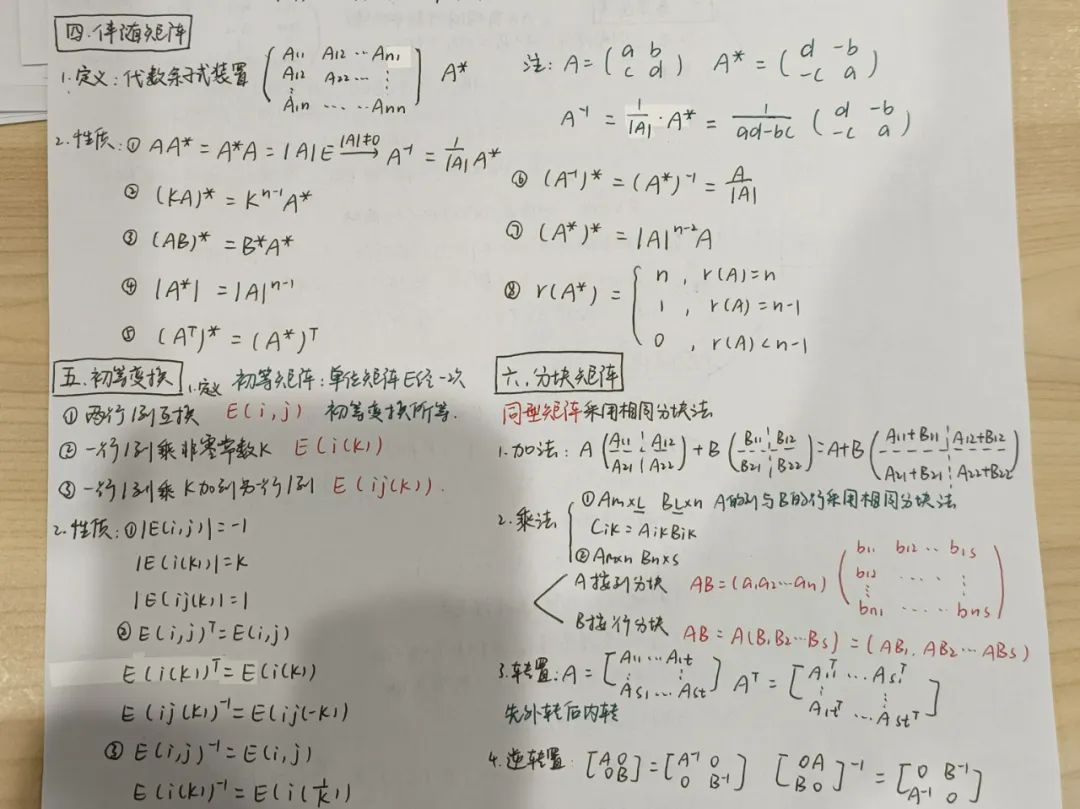 四.伴随矩阵
1.定义:代数余子式装置 ( A11 A12 ... An1
A12 A22 ... ⋮
⋮
A1n ... ... Ann ) A*
注: A = ( a b
c d ) A* = ( d -b
-c a )
A⁻¹ = 1/|A| · A* = 1/(ad-bc) ( d -b
-c a )
2.性质:① AA* = A*A = |A|E —|A|≠0→ A⁻¹ = 1/|A| A*
② (KA)* = Kⁿ⁻¹A*
③ (AB)* = B*A*
④ |A*| = |A|ⁿ⁻¹
⑤ (Aᵀ)* = (A*)ᵀ
⑥ (A⁻¹)* = (A*)⁻¹ = A/|A|
⑦ (A*)* = |A|ⁿ⁻²A
⑧ r(A*) = { n , r(A)=n
1 , r(A)=n-1
0 , r(A)<n-1
五.初等变换
1.定义 初等矩阵:单位矩阵E经一次
① 两行/列互换 E(i,j) 初等变换所等.
② 一行/列乘非零常数K E(i(k))
③ 一行/列乘K加到另一行/列 E(ij(k)).
2.性质:① |E(i,j)|=-1
|E(i(k))|=k
|E(ij(k))|=1
② E(i,j)ᵀ=E(i,j)
E(i(k))ᵀ=E(i(k))
E(ij(k))⁻¹=E(ij(-k))
③ E(i,j)⁻¹=E(i,j)
E(i(k))⁻¹=E(i(1/k))
六.分块矩阵
同型矩阵采用相同分块法
1.加法: A ( A11 A12
A21 A22 ) + B ( B11 B12
B21 B22 ) = A+B ( A11+B11 A12+B12
A21+B21 A22+B22 )
2.乘法 { ① Am×L BL×n A的列与B的行采用相同分块法
Cik = AikBik
② Am×n Bn×s
A按列分块 AB=(a1a2...an) ( b11 b12 ... b1s
b12 .... ⋮
⋮
bn1 ..... bns )
B按行分块 AB=A(B1B2...Bs)=(AB1, AB2...ABs)
3.转置: A = [ A11...A1t
⋮ ⋮
As1...Ast ] Aᵀ = [ A11ᵀ ... As1ᵀ
⋮ ⋮
A1tᵀ ... Astᵀ ]
先外转后内转
4.逆转置: [ A O
O B ] = [ A⁻¹ O
O B⁻¹ ] [ O A
B O ]⁻¹ = [ O B⁻¹
A⁻¹ O ]